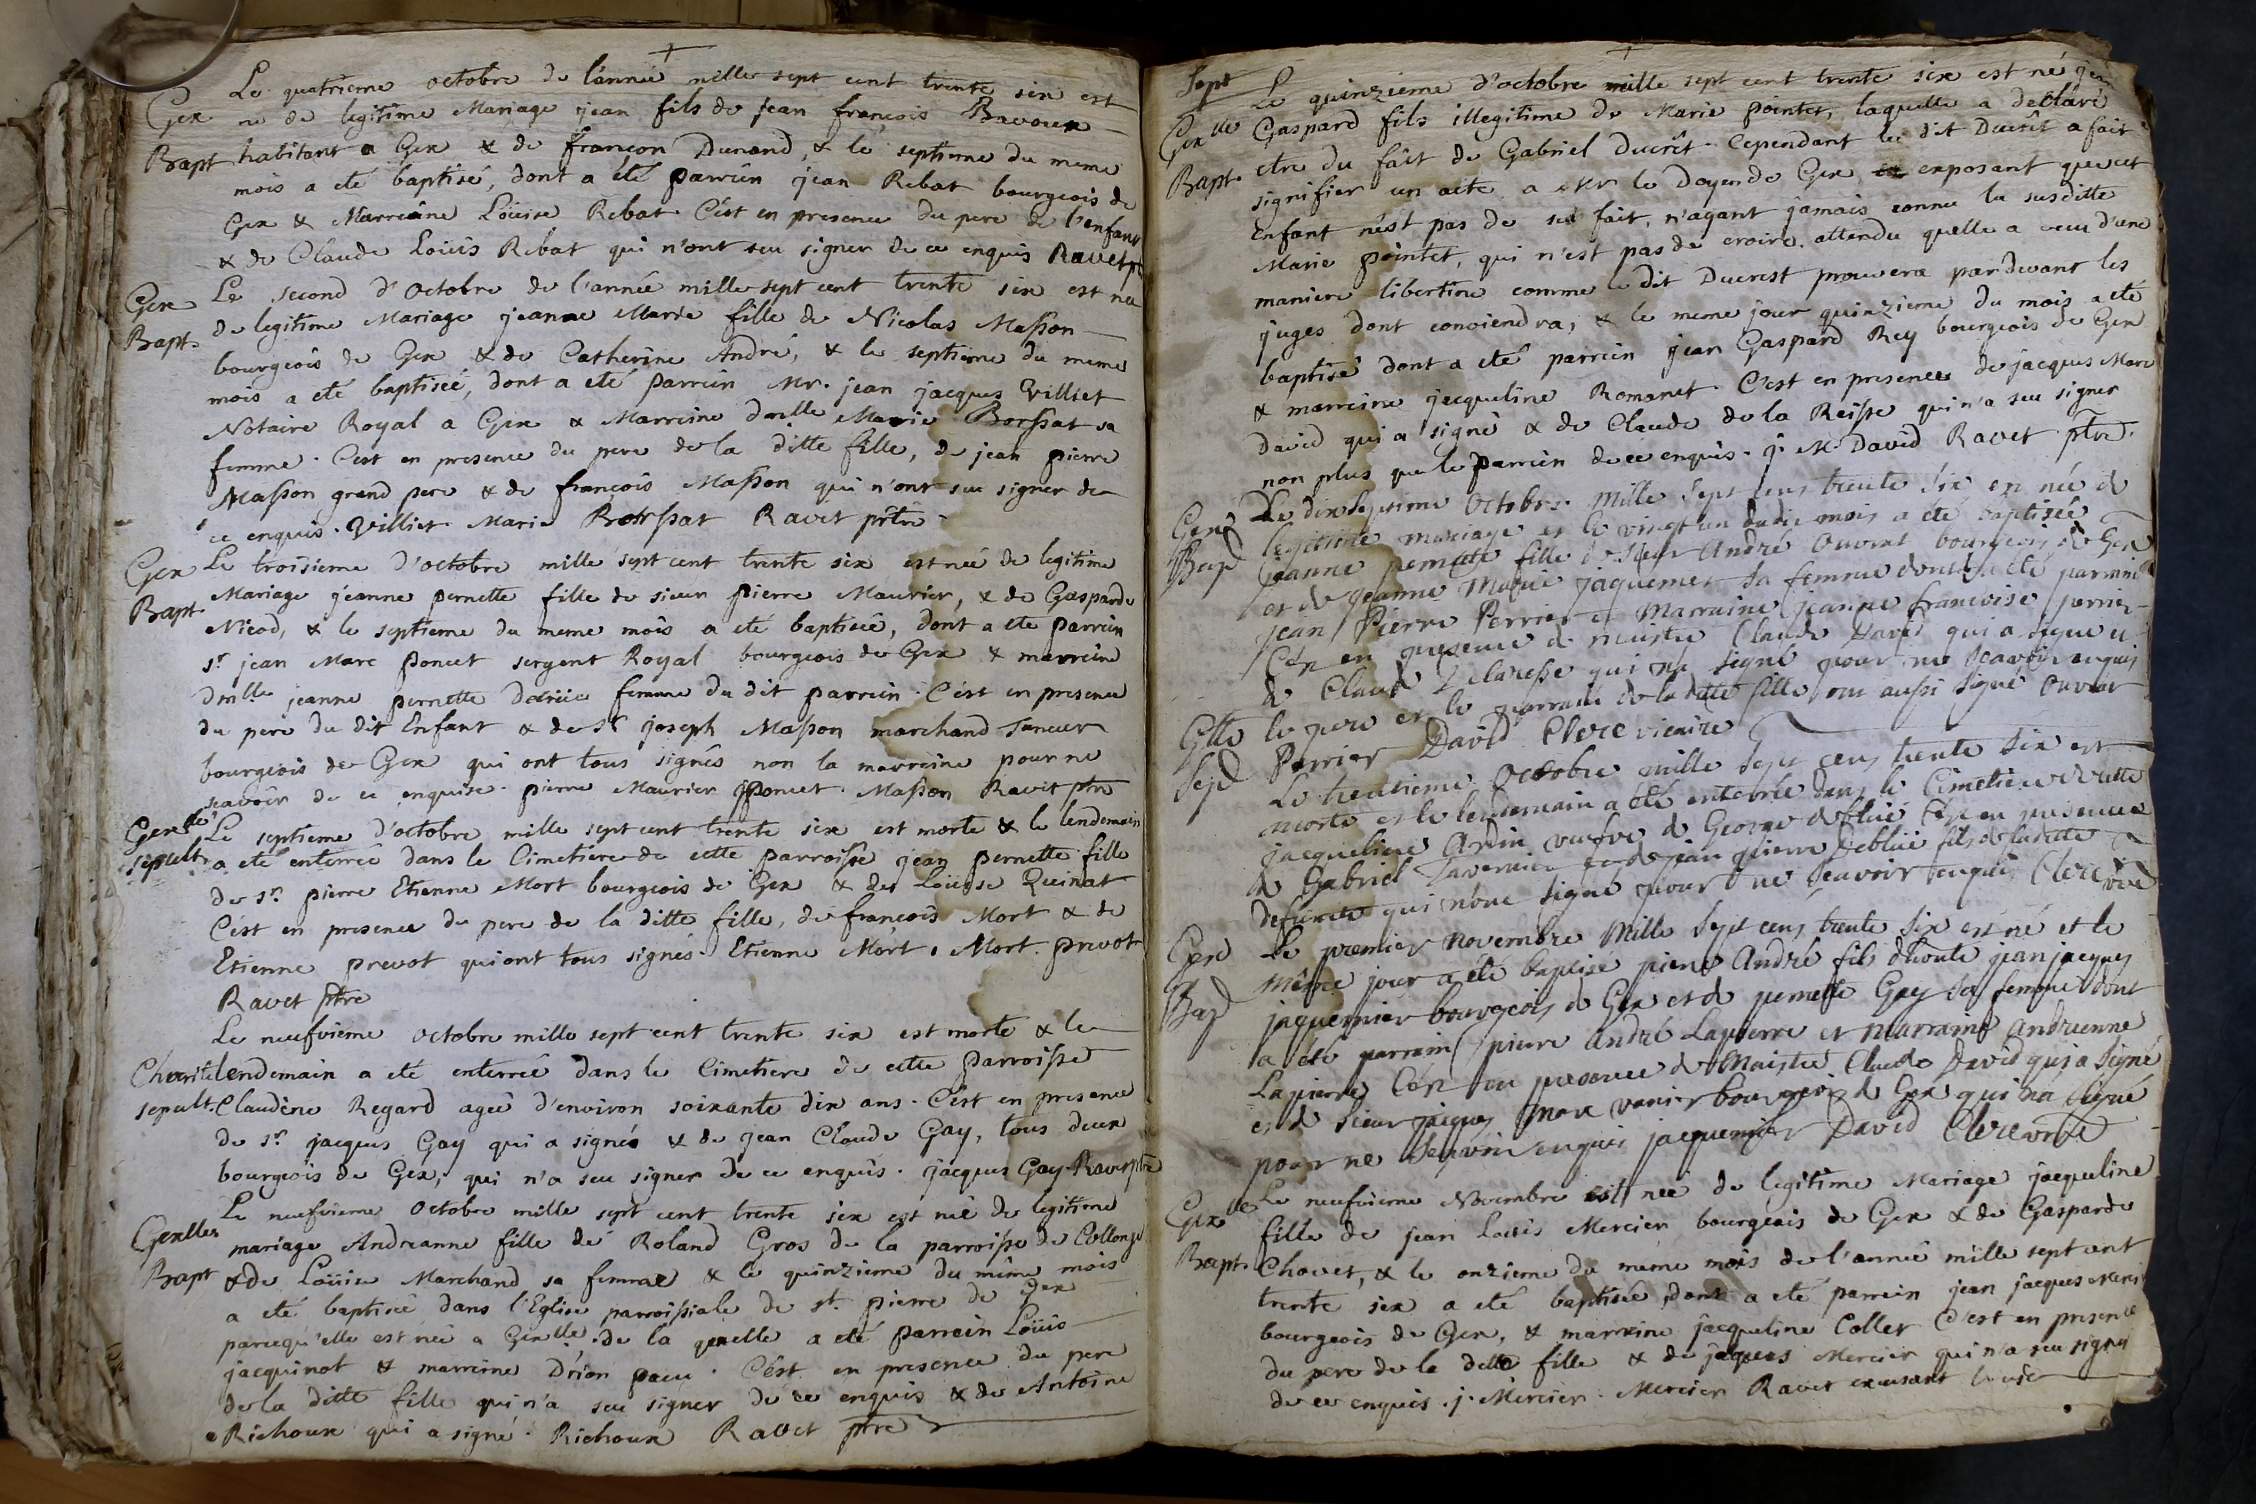 Le quatrieme octobre de l'année mille sept cent trente six est
Gex né de legitime Mariage jean fils de jean françois Bavoux
Bapt habitant a Gex & de françon Dunand, & le septieme du meme
mois a eté baptisé, dont a été parrein jean Rebat bourgeois de
Gex & Marreine Loüise Rebat. C'est en presence du pere de l'enfant
& de Claude Loüis Rebat qui n'ont sçu signer de ce enquis Ravet ptre
Gex Le second d'octobre de l'année mille sept cent trente six est née
Bapt. de legitime Mariage jeanne Marie fille de Nicolas Masson
bourgeois de Gex & de Catherine André, & le septieme du meme
mois a eté baptiseé, dont a eté parrein Mr. jean jacques Villiet
Notaire Royal a Gex & Marreine dmlle Marie Borssat sa
femme. C'est en presence du pere de la ditte fille, de jean pierre
Masson grand pere & de françois Masson qui n'ont sçu signer de
ce enquis. Villiet Marie Borssat Ravet prtre
Gex Le troisieme d'octobre mille sept cent trente six est neé de legitime
Bapt. Mariage jeanne pernette fille de sieur pierre Maurier, & de Gasparde
Nicod, & le septieme du meme mois a eté baptiseé, dont a eté parrein
sr. jean Marc poncet sergent Royal bourgeois de Gex & marreine
dmlle jeanne pernette femme du dit parrein. C'est en presence
du pere du dit Enfant & de Sr joseph Masson marchand Taneur
bourgeois de Gex qui ont tous signés non la marreine pour ne
scavoir de ce enquise. pierre Maurier poncet. Masson Ravet ptre
Gex le Le septieme d'octobre mille sept cent trente six est morte & le lendemain
sepult. a eté enterreé dans le Cimetiere de cette parroisse jean pernette fille
de sr. pierre Etienne Mort bourgeois de Gex & de Loüise Quinat
C'est en presence du pere de la ditte fille, de françois Mort & de
Etienne prevot qui ont tous signés Etienne Mort. Mort. prevot
Ravet ptre
Le neufvieme octobre mille sept cent trente six est morte & le
lendemain a eté enterreé dans le Cimetiere de cette parroisse
sepult. Claudine Regard ageé d'environ soixante dix ans. C'est en presence
de sr. jacques Gay qui a signés & de jean Claude Gay, tous deux
bourgeois de Gex, qui n'a sçu signer de ce enquis. jacques Gay Ravet ptre
Le neufvieme octobre mille sept cent trente six est neé de legitime
Gexlles mariage Andreanne fille de Roland Gros de la parroisse de Collonge
Bapt & de Loüise Marchand sa femme & le quinzieme du même mois
a eté baptiseé dans l'Eglise parroissiale de st. pierre de Gex
parcequ'elle est neé a Gexlle. de la quelle a eté parrein Loüis
jacquinot & marreine D'rion C'est en presence du pere
de la ditte fille qui n'a sçu signer de ce enquis & de Antoine
Richoux qui a signé. Richoux Ravet ptre
Sept Le quinzieme d'octobre mille sept cent trente six est né jean
Gex lle Gaspard fils illegitime de Marie pointet, laquelle a declaré
Bapt. etre du fait de Gabriel Ducrêt. Cependant le dit Ducrêt a fait
signifier un acte a Mr le Doyen de Gex exposant que cet
Enfant n'est pas de sa fait, n'ayant jamais connu la susditte
Marie pointet, qui n'est pas de croire. attendu quelle a vecu d'une
maniere libertine comme le dit Ducrest prouvera pardevant les
juges dont conviendra, & le meme jour quinzieme du mois a eté
baptisé dont a eté parrein jean Gaspard Rey bourgeois de Gex
& marreine jacqueline Romanet. C'est en presence de jacques Marc
David qui a signé & de Claude de la Reisse qui n'a sçu signer
non plus que le parrein de ce enquis. j. M. David Ravet ptre.
Gex Le dixseptieme Octobre mille sept cens trente six en née de
Bap legitime mariage et le vingt un dudit mois a eté baptisée
jeanne pernette fille de sieur André Ouvrat bourgeois de Gex
et de jeanne Marie jaquemet sa femme dont a eté parrain
jean Pierre Perrier et marraine jeanne francoise perrier
C'est en presence de maistre Claude David qui a signé et
de Claude Delaresse qui na signé pour ne sçavoir enquis
le pere et le parrain de la ditte fille ont aussi signé Ouvrat
Perrier David Clerc vicaire
Sep Le trentieme Octobre mille sept cens trente six est
morte et le lendemain a eté enterrée dans le Cimetiere de cette
jacqueline Ardin veufve de George C'est en presence
de Gabriel Tavernier et de jean pierre fils de ladite
defunte qui n'ont signé pour ne sçavoir enquis Clerc vic
Gex Le premier Novembre Mille sept cens trente six est né et le
Bap même jour a été baptisé pierre André fils d'honte jean jacques
jaquemier bourgeois de Gex et de pernette Gay sa femme dont
a eté parrain pierre André Lapierre et marraine andrienne
Lapierre C'est en presence de Maistre Claude David qui a signé
et de sieur jacques Marc vanier bourgeois de Gex qui na signé
pour ne sçavoir enquis jacquemier David Clerc vre
Gex le Le neufvieme Novembre est neé de legitime Mariage jacqueline
fille de jean Louis Mercier bourgeois de Gex & de Gasparde
Bapt. Chovet, & le onzieme du meme mois de l'anneé mille sept cent
trente six a eté baptiseé, dont a eté parrein jean jacques Merci
bourgeois de Gex, & marreine jacqueline Collet C'est en presence
du pere de la ditte fille & de jaques Mercier qui n'a sçu signer
de ce enquis. j. Mercier. Mercier Ravet